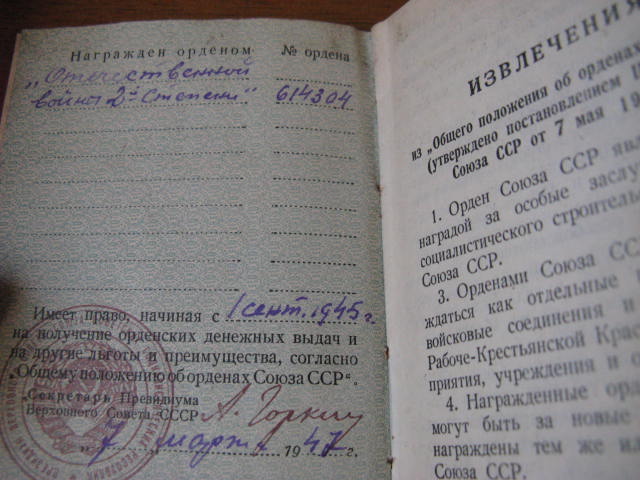 Награжден орденом № ордена
„Отечественной
войны 2й степени" 614304
Имеет право, начиная с 1 сент. 1945 г.
на получение орденских денежных выдач и
на другие льготы и преимущества, согласно
„Общему положению об орденах Союза ССР".
Секретарь Президиума
Верховного Совета СССР А. Горкин
„7" март 1947 г.
ИЗВЛЕЧЕНИЯ
из „Общего положения об орденах
(утверждено постановлением
Союза ССР от 7 мая 19
1. Орден Союза ССР явл
наградой за особые заслу
социалистического строитель
Союза ССР.
3. Орденами Союза СС
ждаться как отдельные
войсковые соединения и
Рабоче-Крестьянской Крас
приятия, учреждения и о
4. Награжденные орд
могут быть за новые
награждены тем же ил
Союза ССР.